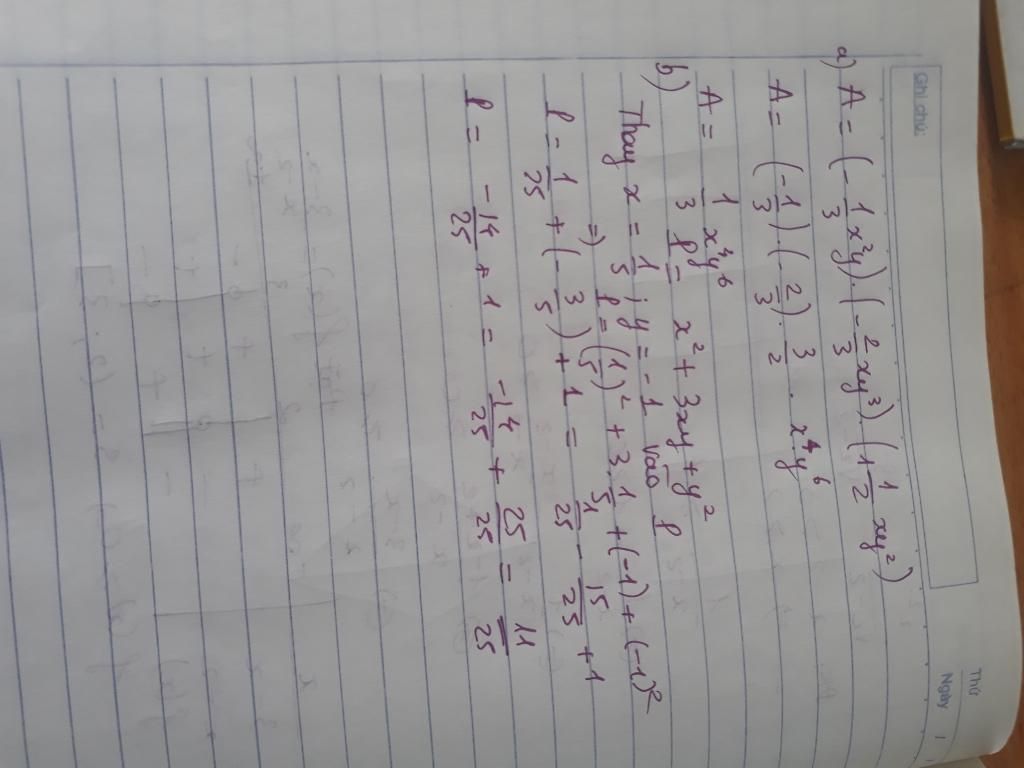 Thứ
Ngày
Ghi chú:
a) A = (-1/3 x²y).(-2/3 xy³).(1 1/2 xy²)
A = (-1/3).(-2/3).3/2 . x⁴y⁶
A = 1/3 x⁴y⁶
b) P = x² + 3xy + y²
Thay x = 1/5 ; y = -1 vào P
=) P = (1/5)² + 3.1/5 + (-1) + (-1)²
P = 1/25 + (-3/5) + 1 = 1/25 - 15/25 + 1
P = -14/25 + 1 = -14/25 + 25/25 = 11/25